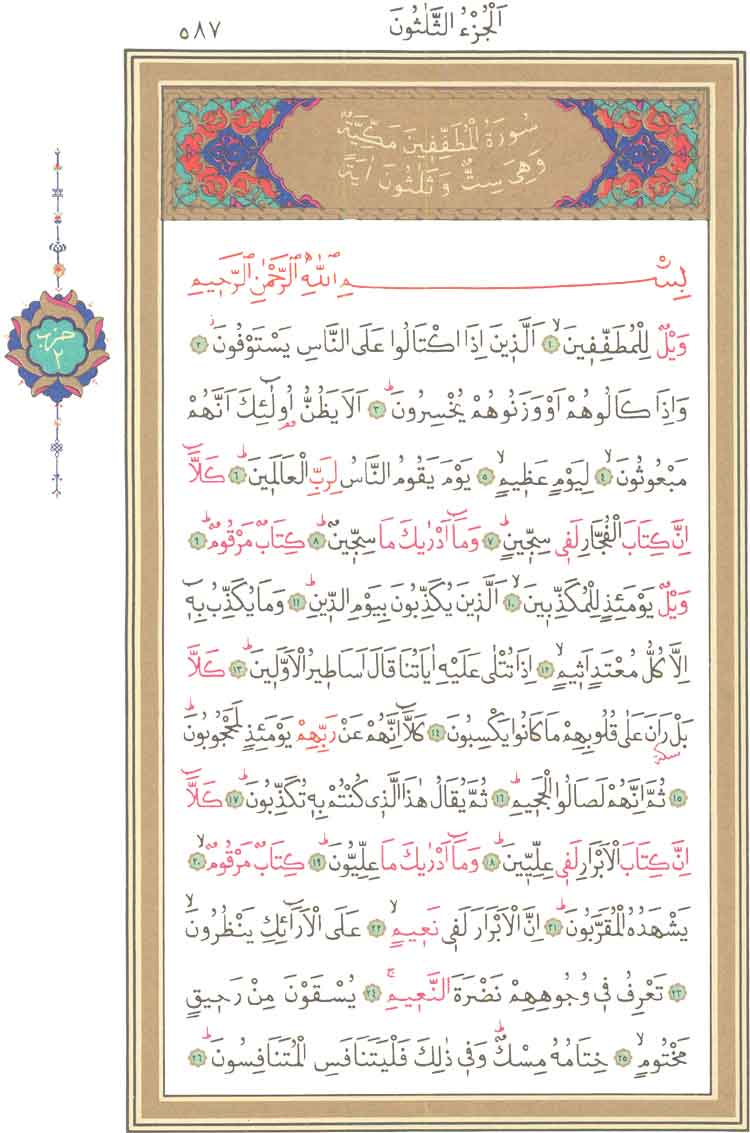 اَلْجُزْءُ الثَّلٰثُونَ
٥٨٧
سُورَةُ الْمُطَفِّفٖينَ مَكِّيَّةٌ
وَهِيَ سِتٌّ وَثَلٰثُونَ اٰيَةً
حزب
٢
بِسْمِ اللّٰهِ الرَّحْمٰنِ الرَّحٖيمِ
وَيْلٌ لِلْمُطَفِّفٖينَۙ ﴿١﴾ اَلَّذٖينَ اِذَا اكْتَالُوا عَلَى النَّاسِ يَسْتَوْفُونَؗ ﴿٢﴾
وَاِذَا كَالُوهُمْ اَوْ وَزَنُوهُمْ يُخْسِرُونَؕ ﴿٣﴾ اَلَا يَظُنُّ اُو۬لٰٓئِكَ اَنَّهُمْ
مَبْعُوثُونَۙ ﴿٤﴾ لِيَوْمٍ عَظٖيمٍۙ ﴿٥﴾ يَوْمَ يَقُومُ النَّاسُ لِرَبِّ الْعَالَمٖينَؕ ﴿٦﴾ كَلَّٓا
اِنَّ كِتَابَ الْفُجَّارِ لَفٖي سِجّٖينٍؕ ﴿٧﴾ وَمَٓا اَدْرٰيكَ مَا سِجّٖينٌؕ ﴿٨﴾ كِتَابٌ مَرْقُومٌؕ ﴿٩﴾
وَيْلٌ يَوْمَئِذٍ لِلْمُكَذِّبٖينَۙ ﴿١٠﴾ اَلَّذٖينَ يُكَذِّبُونَ بِيَوْمِ الدّٖينِؕ ﴿١١﴾ وَمَا يُكَذِّبُ بِهٖٓ
اِلَّا كُلُّ مُعْتَدٍ اَثٖيمٍۙ ﴿١٢﴾ اِذَا تُتْلٰى عَلَيْهِ اٰيَاتُنَا قَالَ اَسَاطٖيرُ الْاَوَّلٖينَؕ ﴿١٣﴾ كَلَّا
بَلْ رَانَ عَلٰى قُلُوبِهِمْ مَا كَانُوا يَكْسِبُونَ ﴿١٤﴾ كَلَّٓا اِنَّهُمْ عَنْ رَبِّهِمْ يَوْمَئِذٍ لَمَحْجُوبُونَؕ
﴿١٥﴾ ثُمَّ اِنَّهُمْ لَصَالُوا الْجَحٖيمِؕ ﴿١٦﴾ ثُمَّ يُقَالُ هٰذَا الَّذٖي كُنْتُمْ بِهٖ تُكَذِّبُونَؕ ﴿١٧﴾ كَلَّٓا
اِنَّ كِتَابَ الْاَبْرَارِ لَفٖي عِلِّيّٖينَؕ ﴿١٨﴾ وَمَٓا اَدْرٰيكَ مَا عِلِّيُّونَؕ ﴿١٩﴾ كِتَابٌ مَرْقُومٌۙ ﴿٢٠﴾
يَشْهَدُهُ الْمُقَرَّبُونَؕ ﴿٢١﴾ اِنَّ الْاَبْرَارَ لَفٖي نَعٖيمٍۙ ﴿٢٢﴾ عَلَى الْاَرَٓائِكِ يَنْظُرُونَۙ
﴿٢٣﴾ تَعْرِفُ فٖي وُجُوهِهِمْ نَضْرَةَ النَّعٖيمِۚ ﴿٢٤﴾ يُسْقَوْنَ مِنْ رَحٖيقٍ
مَخْتُومٍۙ ﴿٢٥﴾ خِتَامُهُ مِسْكٌؕ وَفٖي ذٰلِكَ فَلْيَتَنَافَسِ الْمُتَنَافِسُونَؕ ﴿٢٦﴾